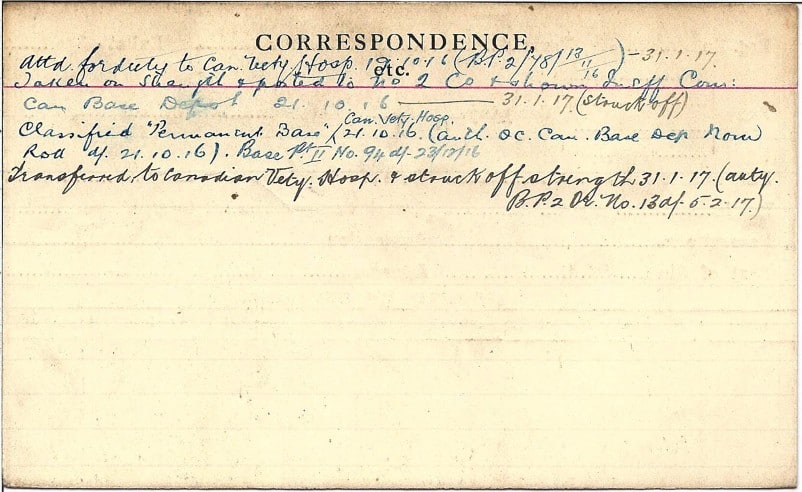 CORRESPONDENCE,
etc.
Attd. for duty to Can. Vety Hosp. 19.10.16 (B.P. 2/78/13/11/16) - 31.1.17.
Taken on Strength & posted to No 2 Co & shown
Can Base Depot 21.10.16 — 31.1.17. (struck off)
Can. Vety. Hosp.
Classified "Permanent Base" 21.10.16. (auth. OC. Can. Base Dep Nom
Roll df. 21.10.16). Base Pt II No. 94 df. 23/12/16
Transferred to Canadian Vety. Hosp. & struck off strength 31.1.17. (auty.
B.P.2 Or. No. 13 df. 5.2.17.)